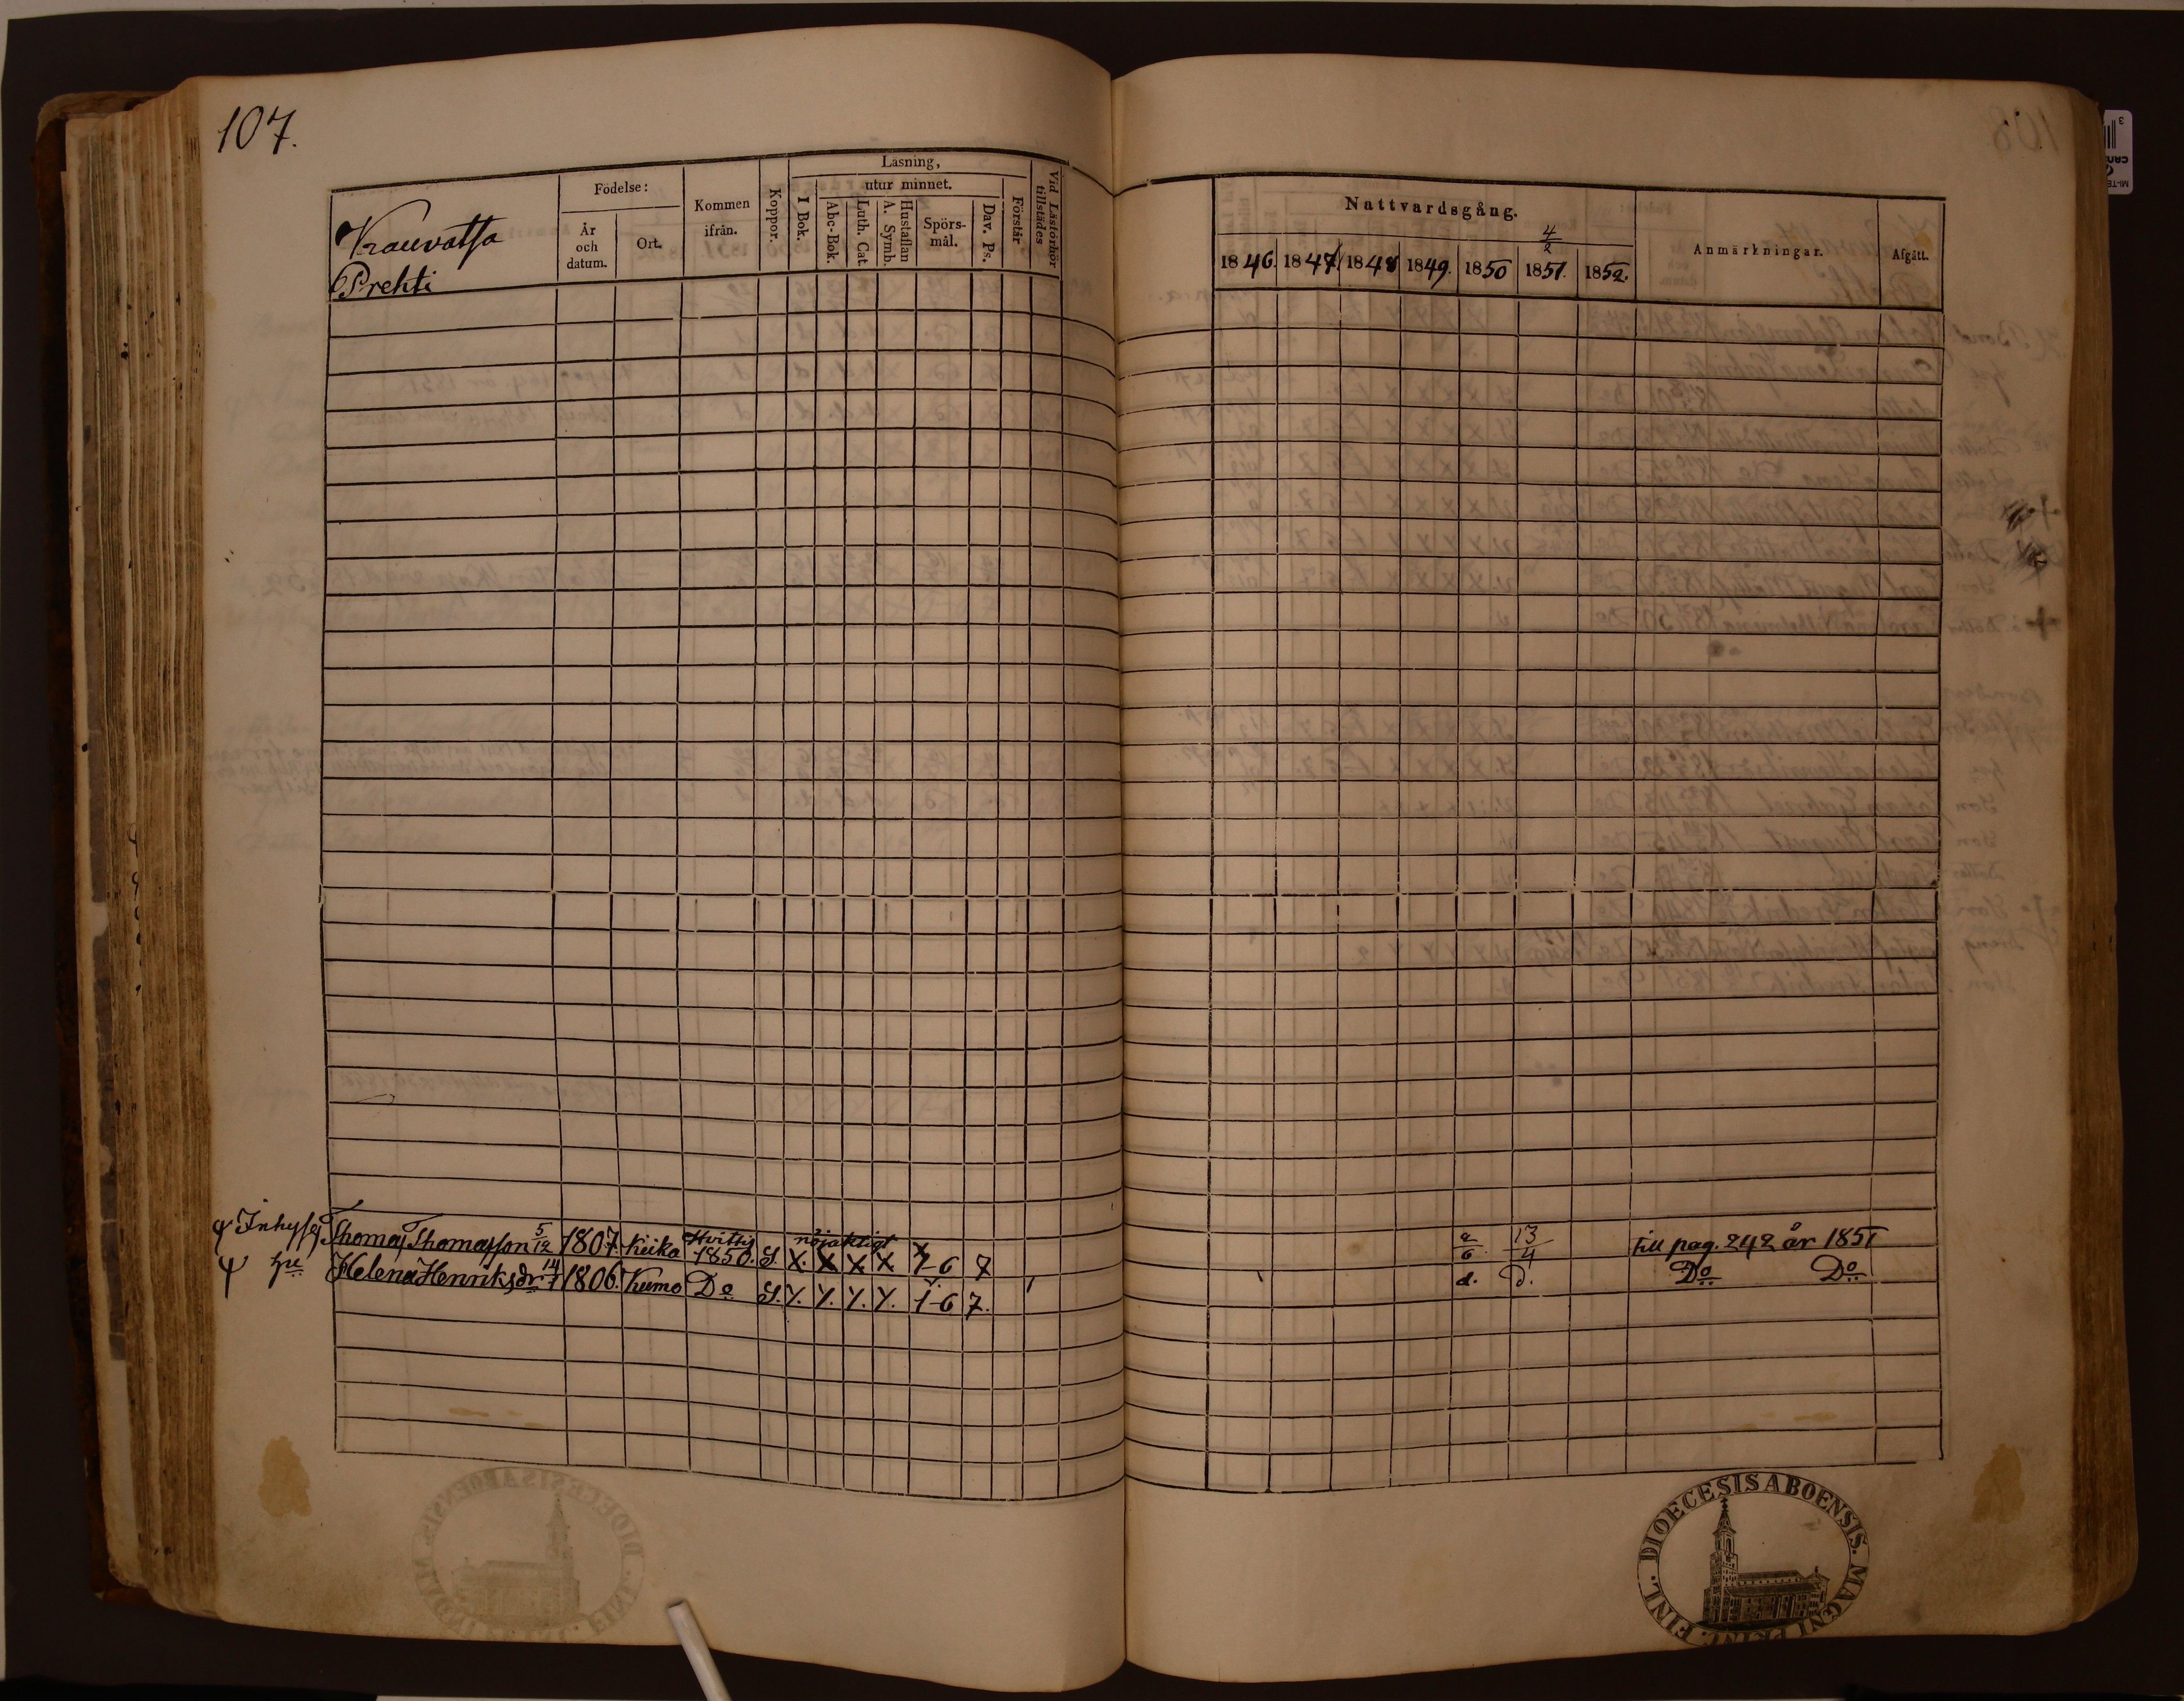 107.
Krauvatsa
Prehti
Födelse:
År
och
datum.
Ort.
Kommen
ifrån.
Koppor.
Läsning,
utur minnet.
I Bok.
Abc-Bok.
Luth. Cat.
Hustaflan
A. Symb.
Spörs-
mål.
Dav. Ps.
Förstår
Vid Läsförhör
tillstädes
Nattvardsgång.
4/2
1846. 1847 1848 1849. 1850 1851. 1852.
Anmärkningar.
Afgått.
Inhyses Thomas Thomasson 5/12 1807. Kiika Hvittis 1850. S. nöjaktigt X. X X X 1-6 7 a/6. 13/4 till pag. 242 år 1851
hu Helena Henriksdr 14/1 1806. Kumo Do S. Y. Y. Y. Y. 1-6 7. d. d. Do Do
DIOECESIS ABOENSIS. MAGNI PRINC. FINL.